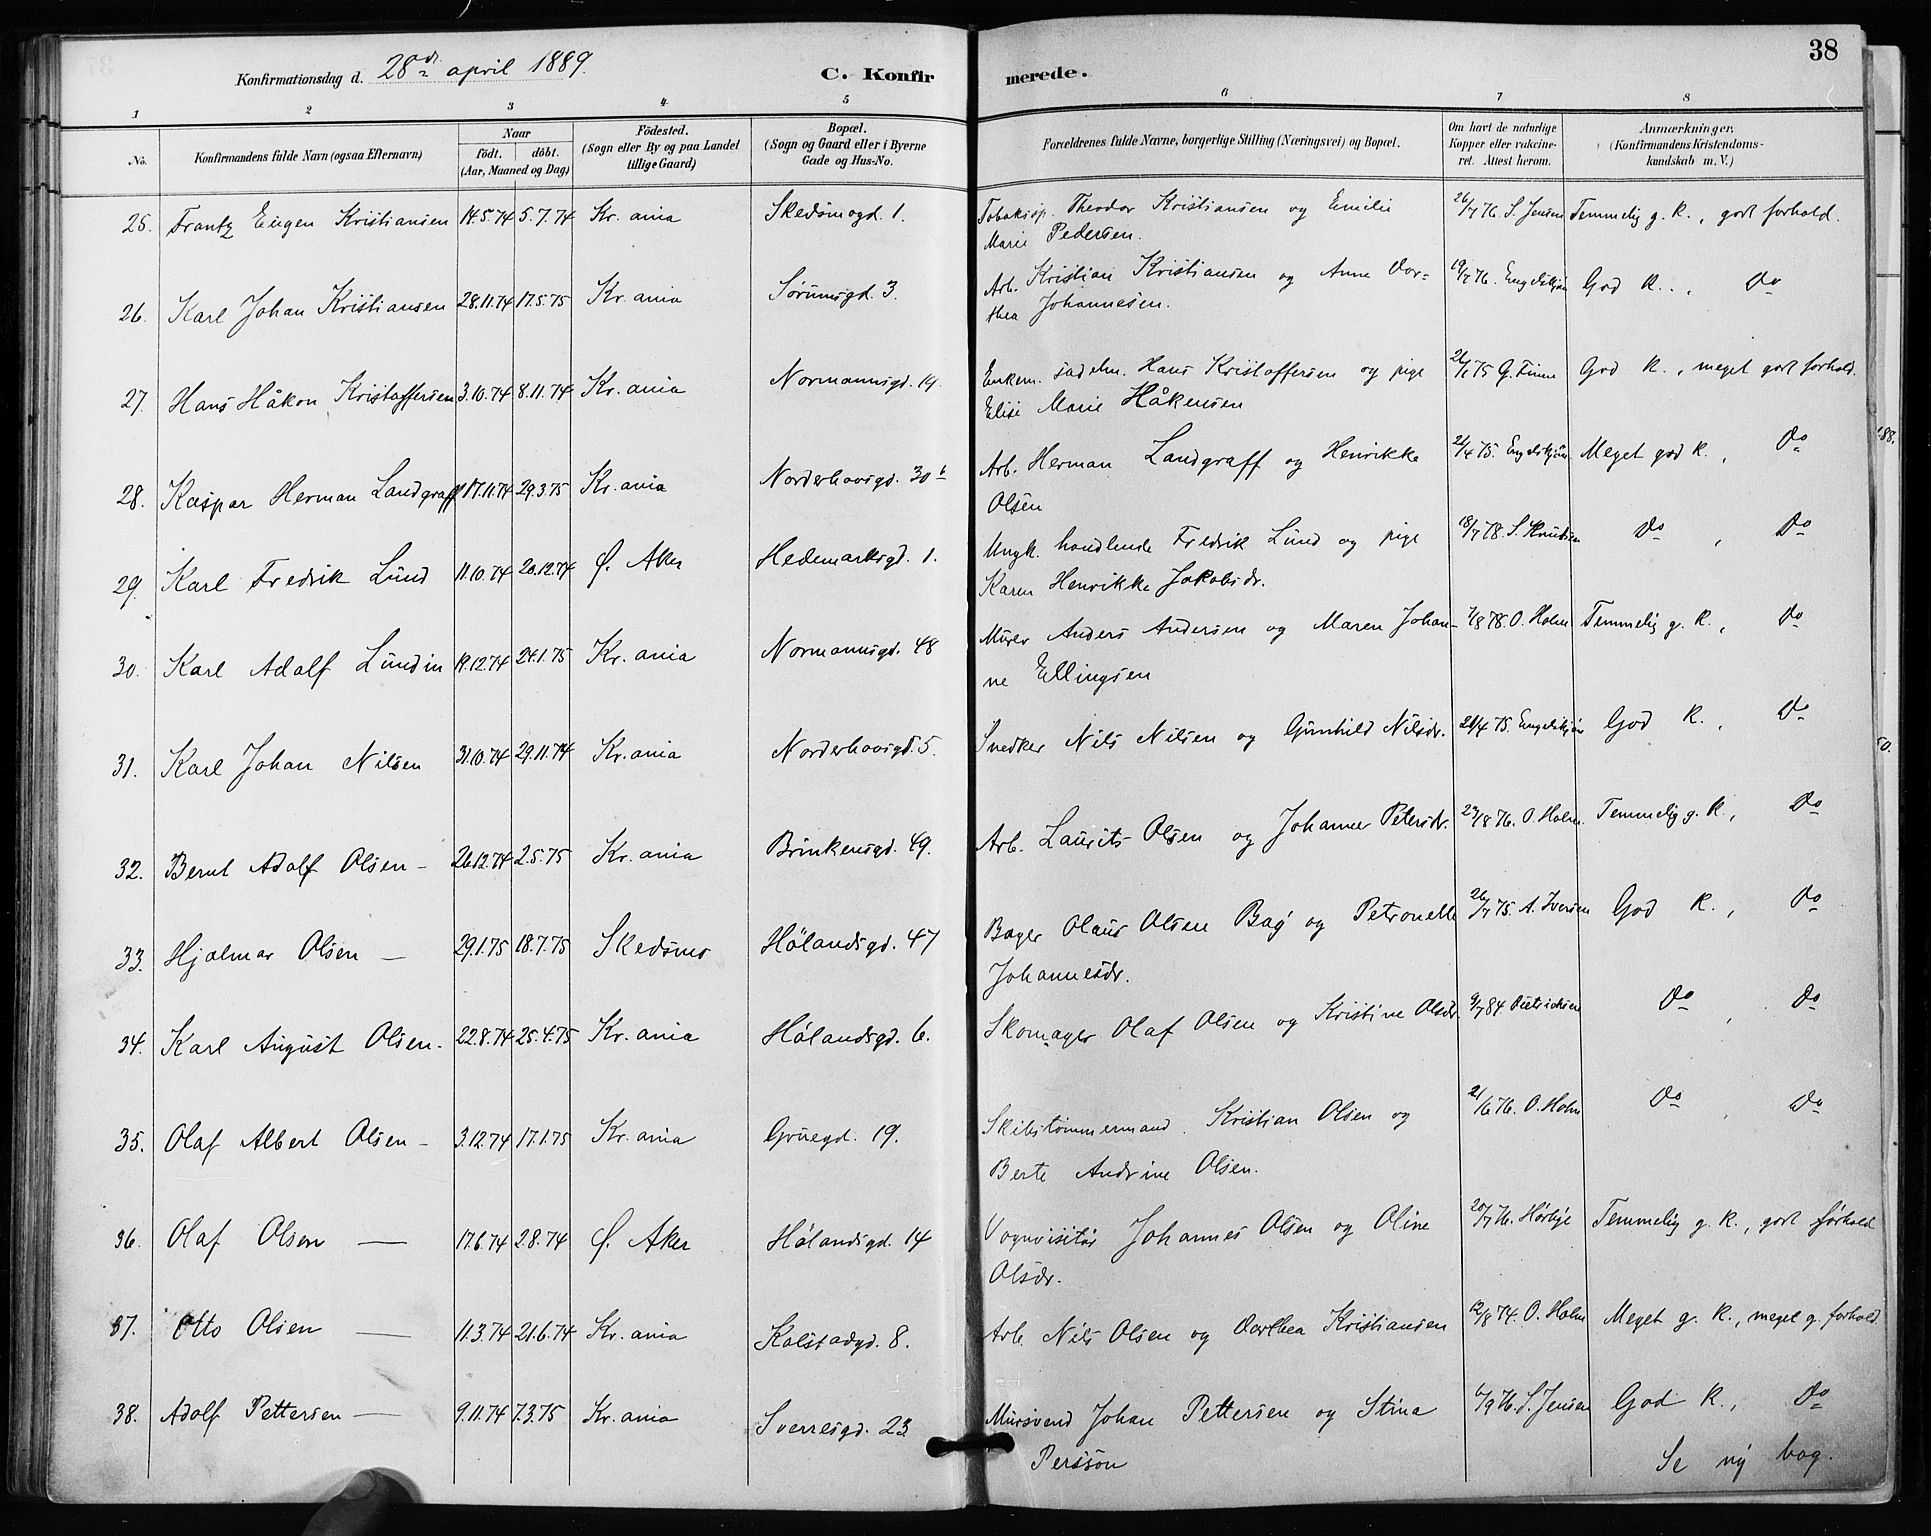 38
Konfirmationsdag d. 28de april 1889. C. Konfir merede.
1 2 3 4 5 6 7 8
No. Konfirmandens fulde Navn (ogsaa Efternavn) Naar Födt. döbt. (Aar, Maaned og Dag) Födested. (Sogn eller By og paa Landet tillige Gaard) Bopæl. (Sogn og Gaard eller i Byerne Gade og Hus-No. Forældrenes fulde Navne, borgerlige Stilling (Næringsvei) og Bopæl. Om havt de naturlige Kopper eller vakcineret. Attest herom. Anmærkninger. (Konfirmandens Kristendomskundskab m. V.)
25. Frantz Eugen Kristiansen 14.5.74 5.7.74 Kr.ania Skedsmogd. 1. Tobaksp. Theodor Kristiansen og Emilie 26/7 76. S. Jensen Temmelig g. K., godt forhold.
Marie Pedersen.
26. Karl Johan Kristiansen 28.11.74 17.5.75 Kr.ania Sørumsgd. 3. Arb. Kristian Kristiansen og Anne Dor- 19/7 76. Engelskjøn God K., Do
thea Johannesen.
27. Hans Håkon Kristoffersen 3.10.74 8.11.74 Kr.ania Normannsgd. 19. Enkem. sadelm. Hans Kristoffersen og pige G. Finne God K., meget godt forhold.
Elise Marie Håkensen
28. Kaspar Herman Landgraff 17.11.74 29.3.75 Kr.ania Norderhovsgd. 30b Arb. Herman Landgraff og Henrikke 21/4 75. Engelskjøn Meget god K., Do
Olsen
29. Karl Fredrik Lund 11.10.74 20.12.74 Ø. Aker Hedemarksgd. 1. Ungk. handlende Fredrik Lund og pige 18/7 78. S. Knudsen Do, Do
Karen Henrikke Jakobsdr.
30. Karl Adolf Lundin 19.12.74 24.1.75 Kr.ania Normannsgd. 48 Murer Anders Andersen og Maren Johan- 7/8 78. O. Holm Temmelig g. K., Do
ne Ellingsen
31. Karl Johan Nilsen 31.10.74 29.11.74 Kr.ania Norderhovsgd. 5. Snedker Nils Nilsen og Gunhild Nilsdr. 21/4 75. Engelskjøn God K., Do
32. Bernt Adolf Olsen – 26.12.74 2.5.75 Kr.ania Brinkensgd. 49. Arb. Laurits Olsen og Johanne Petersdr. 23/8 76. O. Holm. Temmelig g. K., Do
33. Hjalmar Olsen – 29.1.75 18.7.75 Skedsmo Hølandsgd. 47 Bager Olaus Olsen Bag og Petronelle 26/7 75. A. Iversen God K., Do
Johannesdr.
34. Karl August Olsen. 22.8.74 25.4.75 Kr.ania Hølandsgd. 6. Skomager Olaf Olsen og Kristine Olsdr. 9/7 84 Dietrichsen Do, Do
35. Olaf Albert Olsen – 3.12.74 17.1.75 Kr.ania Gruegd. 19. Skibstømmermand Kristian Olsen og 21/6 76. O. Holm Do, Do
Berte Andrine Olsen.
36. Olaf Olsen — 17.6.74 2.8.74 Ø. Aker Hølandsgd. 14 Vognvisitør Johannes Olsen og Oline 20/7 76. Hørbye Temmelig g. K., godt forhold
Olsdr.
37. Otto Olsen — 11.3.74 21.6.74 Kr.ania Kalstadgd. 8. Arb. Nils Olsen og Dorthea Kristiansen 12/8 74. O. Holm Meget g. K., meget g. forhold
38. Adolf Pettersen — 9.11.74 7.3.75 Kr.ania Sverresgd. 23. Mursvend Johan Pettersen og Stina 6/9 76. S. Jensen God K., Do
Persson Se ny bog.